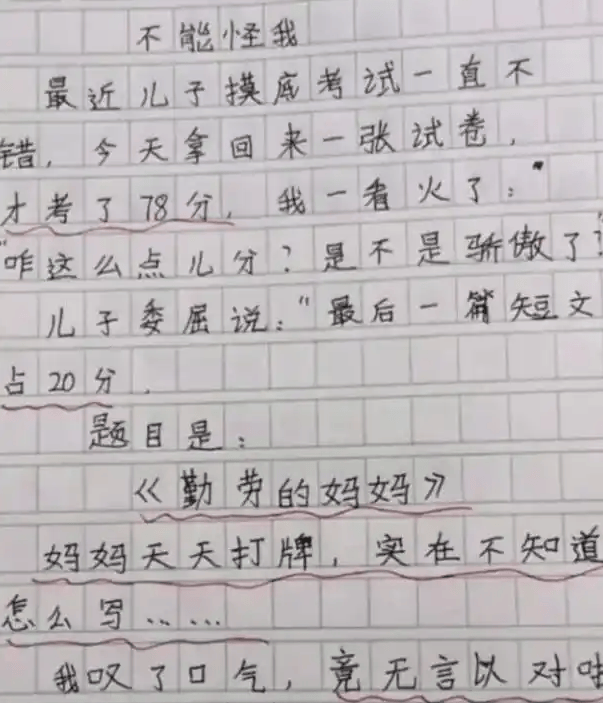 不能怪我
最近儿子摸底考试一直不
错，今天拿回来一张试卷，
才考了78分，我一看火了：
“咋这么点儿分？是不是骄傲了？
儿子委屈说：“最后一篇短文
占20分．
题目是：
《勤劳的妈妈》
妈妈天天打牌，实在不知道
怎么写……
我叹了口气，竟无言以对